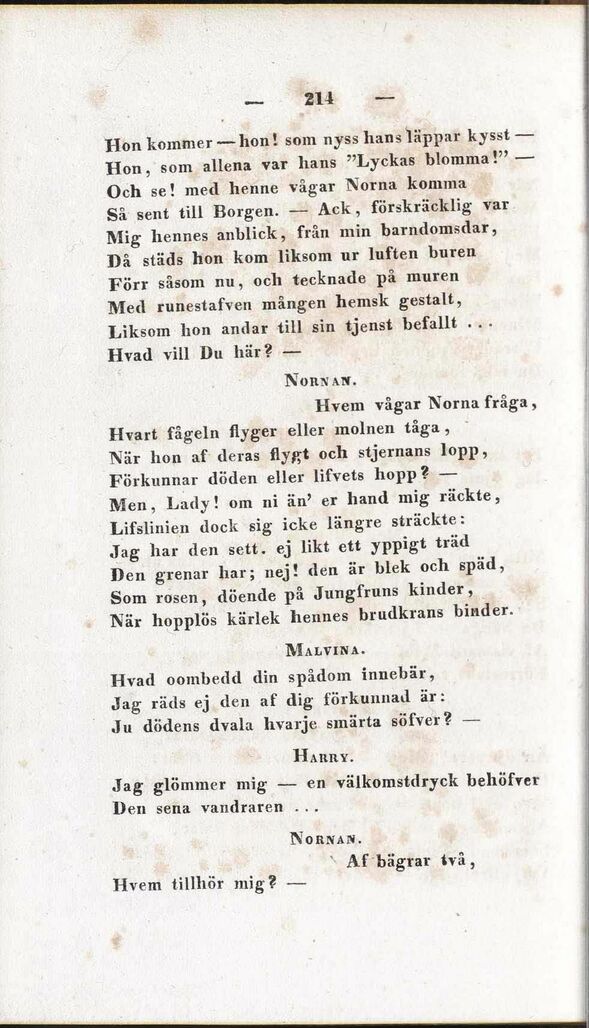 — 214 —
Hon kommer — hon! som nyss hans läppar kysst —
Hon, som allena var hans "Lyckas blomma!" —
Och se! med henne vågar Norna komma
Så sent till Borgen. — Ack, förskräcklig var
Mig hennes anblick, från min barndomsdar,
Då städs hon kom liksom ur luften buren
Förr såsom nu, och tecknade på muren
Med runestafven mången hemsk gestalt,
Liksom hon andar till sin tjenst befallt ...
Hvad vill Du här? —
NORNAN.
Hvem vågar Norna fråga,
Hvart fågeln flyger eller molnen tåga,
När hon af deras flygt och stjernans lopp,
Förkunnar döden eller lifvets hopp? —
Men, Lady! om ni än' er hand mig räckte,
Lifslinien dock sig icke längre sträckte:
Jag har den sett. ej likt ett yppigt träd
Den grenar har; nej! den är blek och späd,
Som rosen, döende på Jungfruns kinder,
När hopplös kärlek hennes brudkrans binder.
MALVINA.
Hvad oombedd din spådom innebär,
Jag räds ej den af dig förkunnad är:
Ju dödens dvala hvarje smärta söfver? —
HARRY.
Jag glömmer mig — en välkomstdryck behöfver
Den sena vandraren ...
NORNAN.
Af bägrar två,
Hvem tillhör mig? —